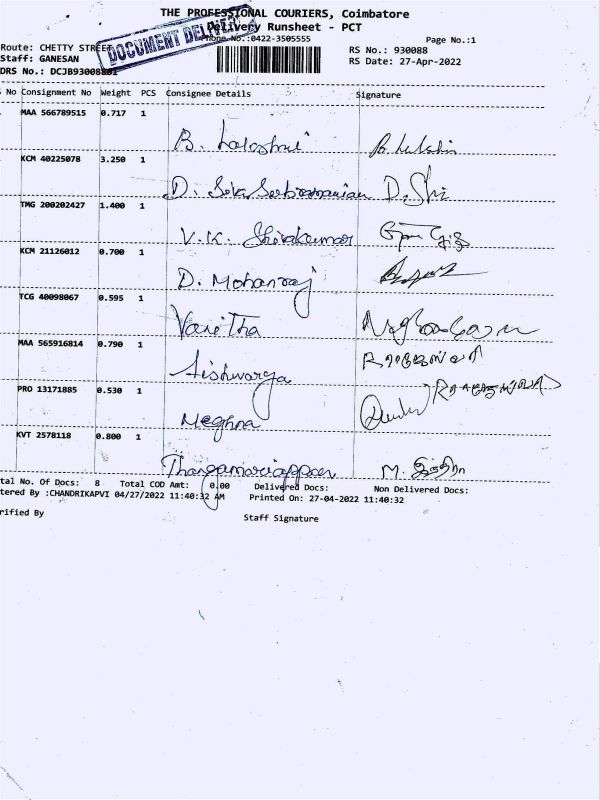 THE PROFESSIONAL COURIERS, Coimbatore
Delivery Runsheet - PCT
Phone No.:0422-3505555
DOCUMENT DELIVERY
Page No.:1
Route: CHETTY STREET
RS No.: 930088
Staff: GANESAN
RS Date: 27-Apr-2022
DRS No.: DCJB93008801
No Consignment No Weight PCS Consignee Details Signature
MAA 566789515 0.717 1
B. Lakshmi
KCM 40225078 3.250 1
D. Siva Subramanian D. Shi
TMG 200202427 1.400 1
V.K. Shivakumar
KCM 21126012 0.700 1
D. Mohanraj
TCG 40098067 0.595 1
Vanitha
MAA 565916814 0.790 1
Aishwarya
PRO 13171885 0.530 1
Meghna
KVT 2578118 0.800 1
Thangamariappan M. இந்திரா
tal No. Of Docs: 8 Total COD Amt: 0.00 Delivered Docs: Non Delivered Docs:
tered By :CHANDRIKAPVI 04/27/2022 11:40:32 AM Printed On: 27-04-2022 11:40:32
rified By Staff Signature